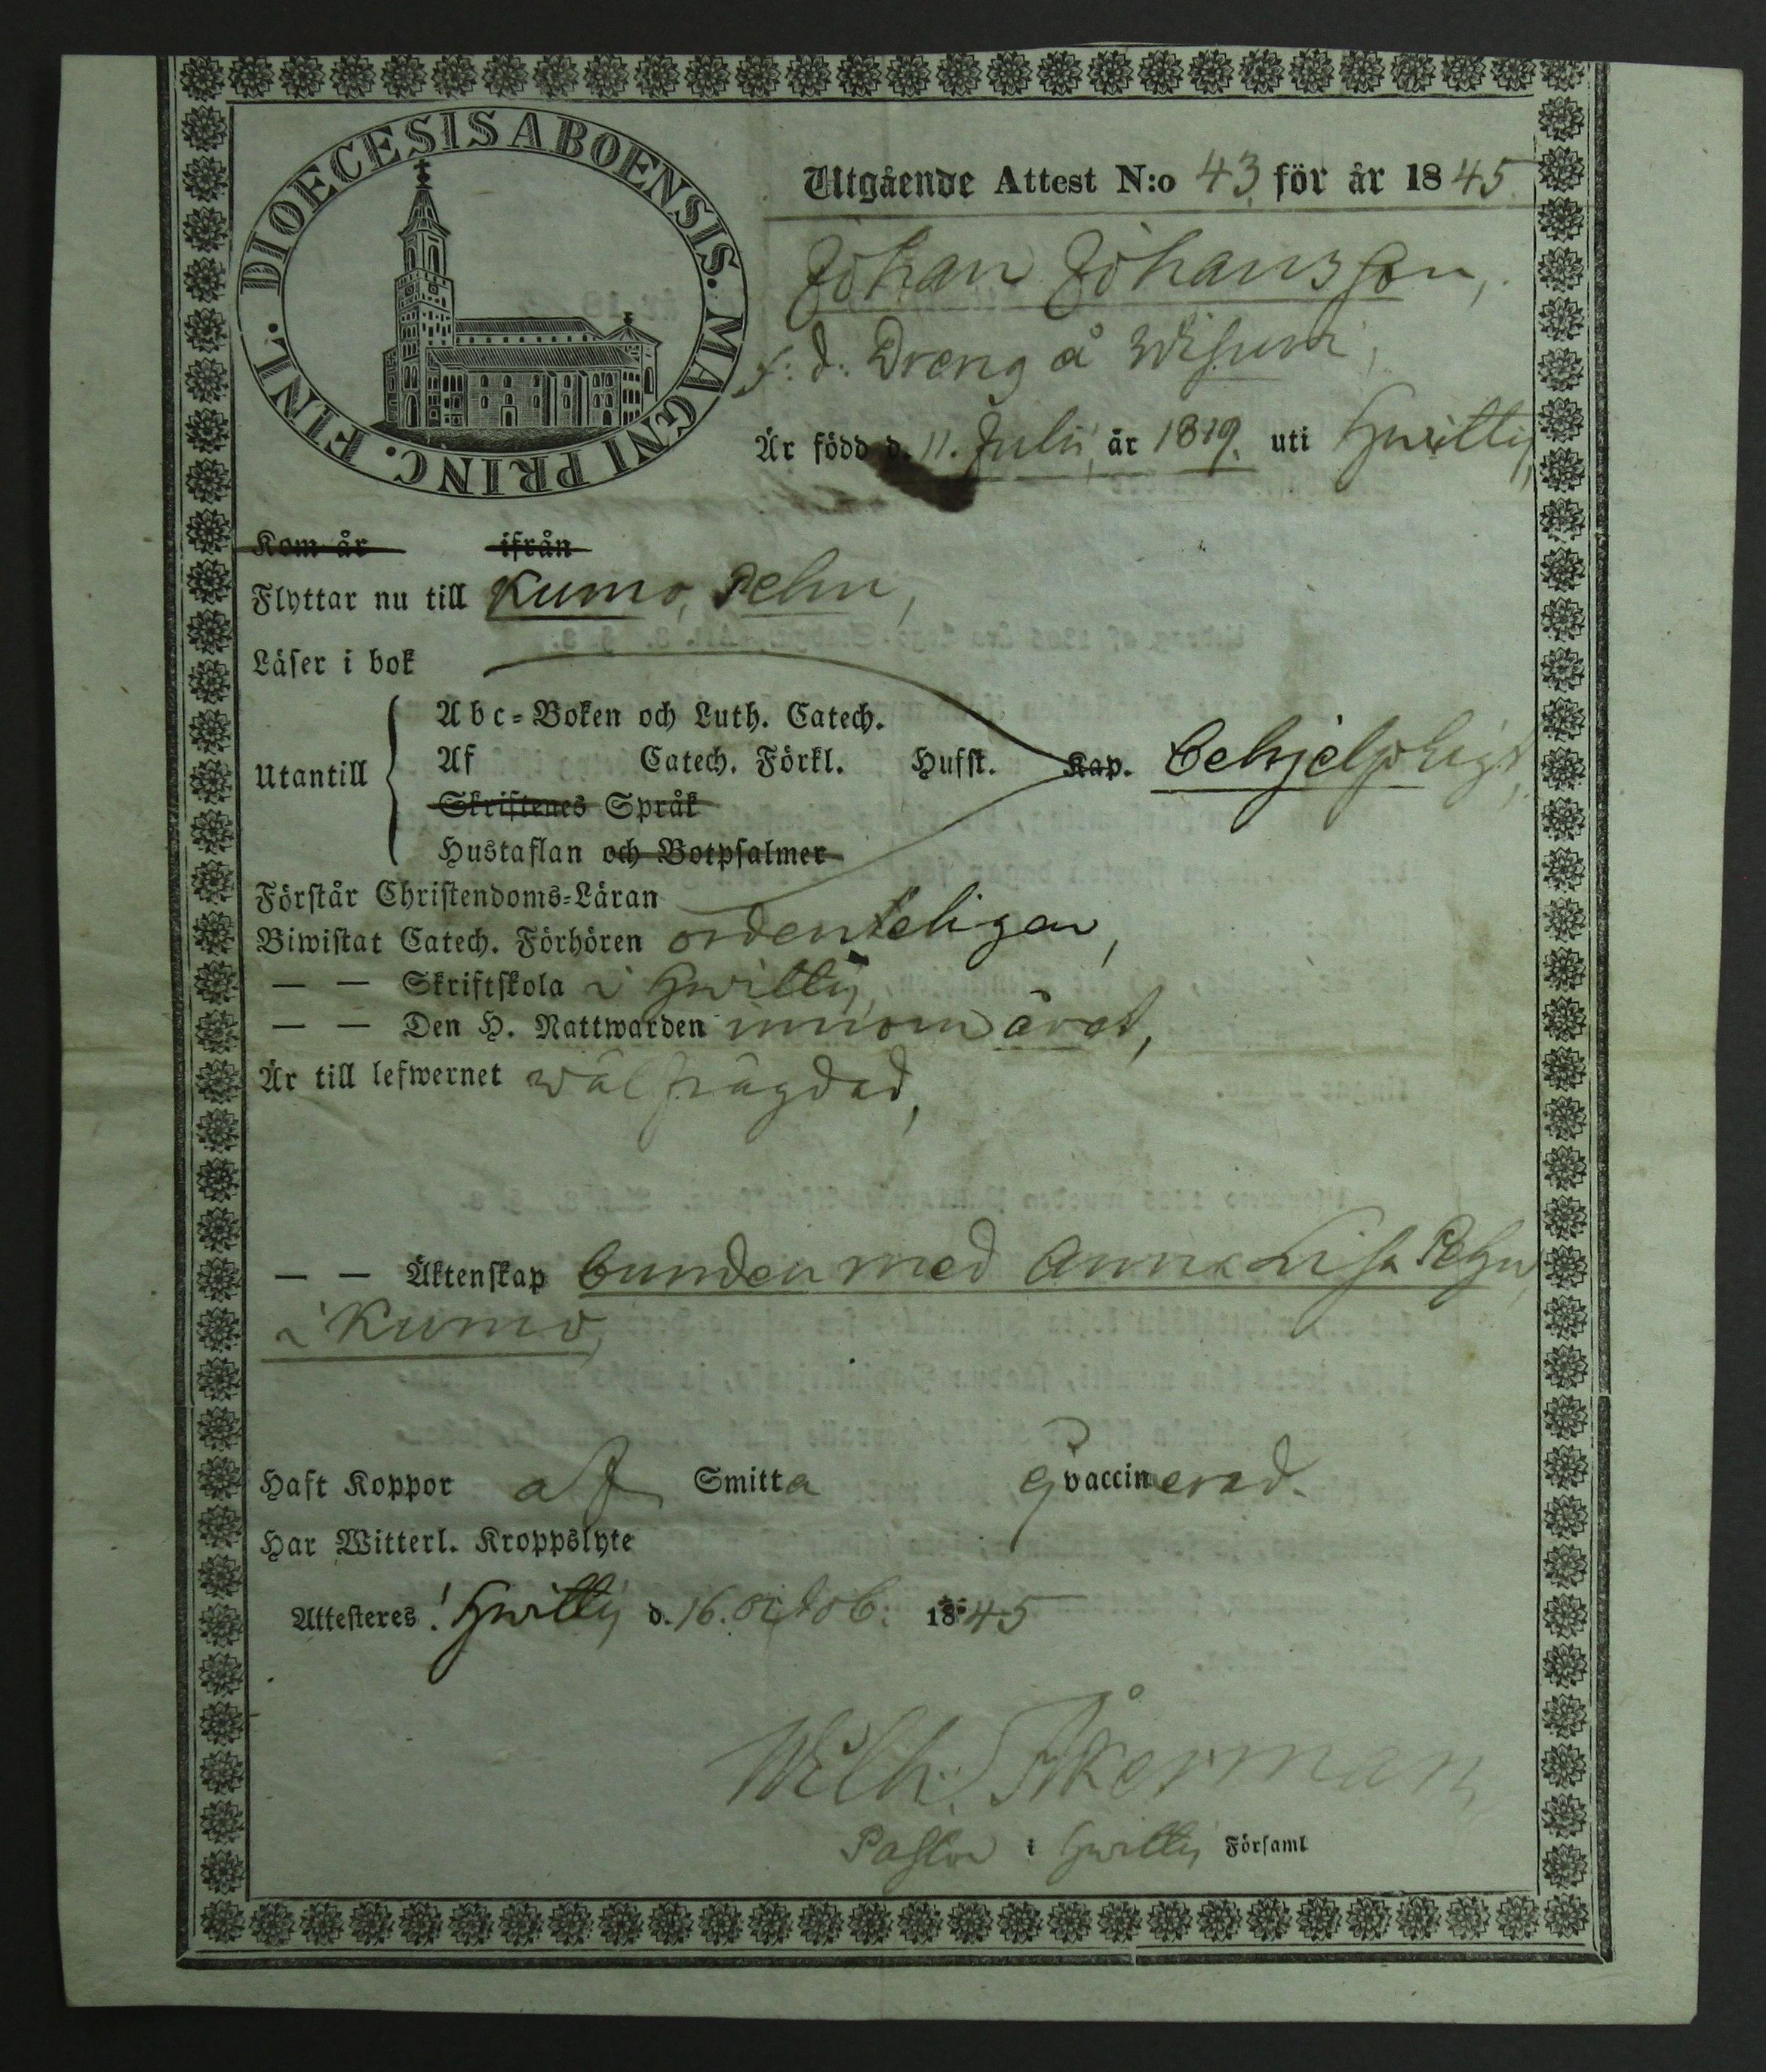 DIOECESIS ABOENSIS. MAGNI PRINC. FINL.
Utgående Attest N:o 43 för år 1845.
Johan Johansson,
f: d: Dreng å
Är född d. 11. Julii, år 1819. uti Hwittis,
Kom år ifrån
Flyttar nu till Kumo, Pehu,
Läser i bok
Abc-Boken och Luth. Catech.
Utantill Af Catech. Förkl. Husst. Kap. behjelpligt,
Skriftenes Språk
Hustaflan och Botpsalmer
Förstår Christendoms-Läran
Biwistat Catech. Förhören ordenteligen,
— — Skriftskola i Hwittis,
— — Den H. Nattwarden innom året,
Är till lefwernet wälfrägdad,
— — Äktenskap bunden med Anna Lisa Pehu,
i Kumo,
Haft Koppor af Smitta ej vaccinerad.
Har Witterl. Kroppslyte
Attesteres! Hwittis d. 16. Octob: 1845
Wilh. Åkerman
Pastor i Hwittis Församl